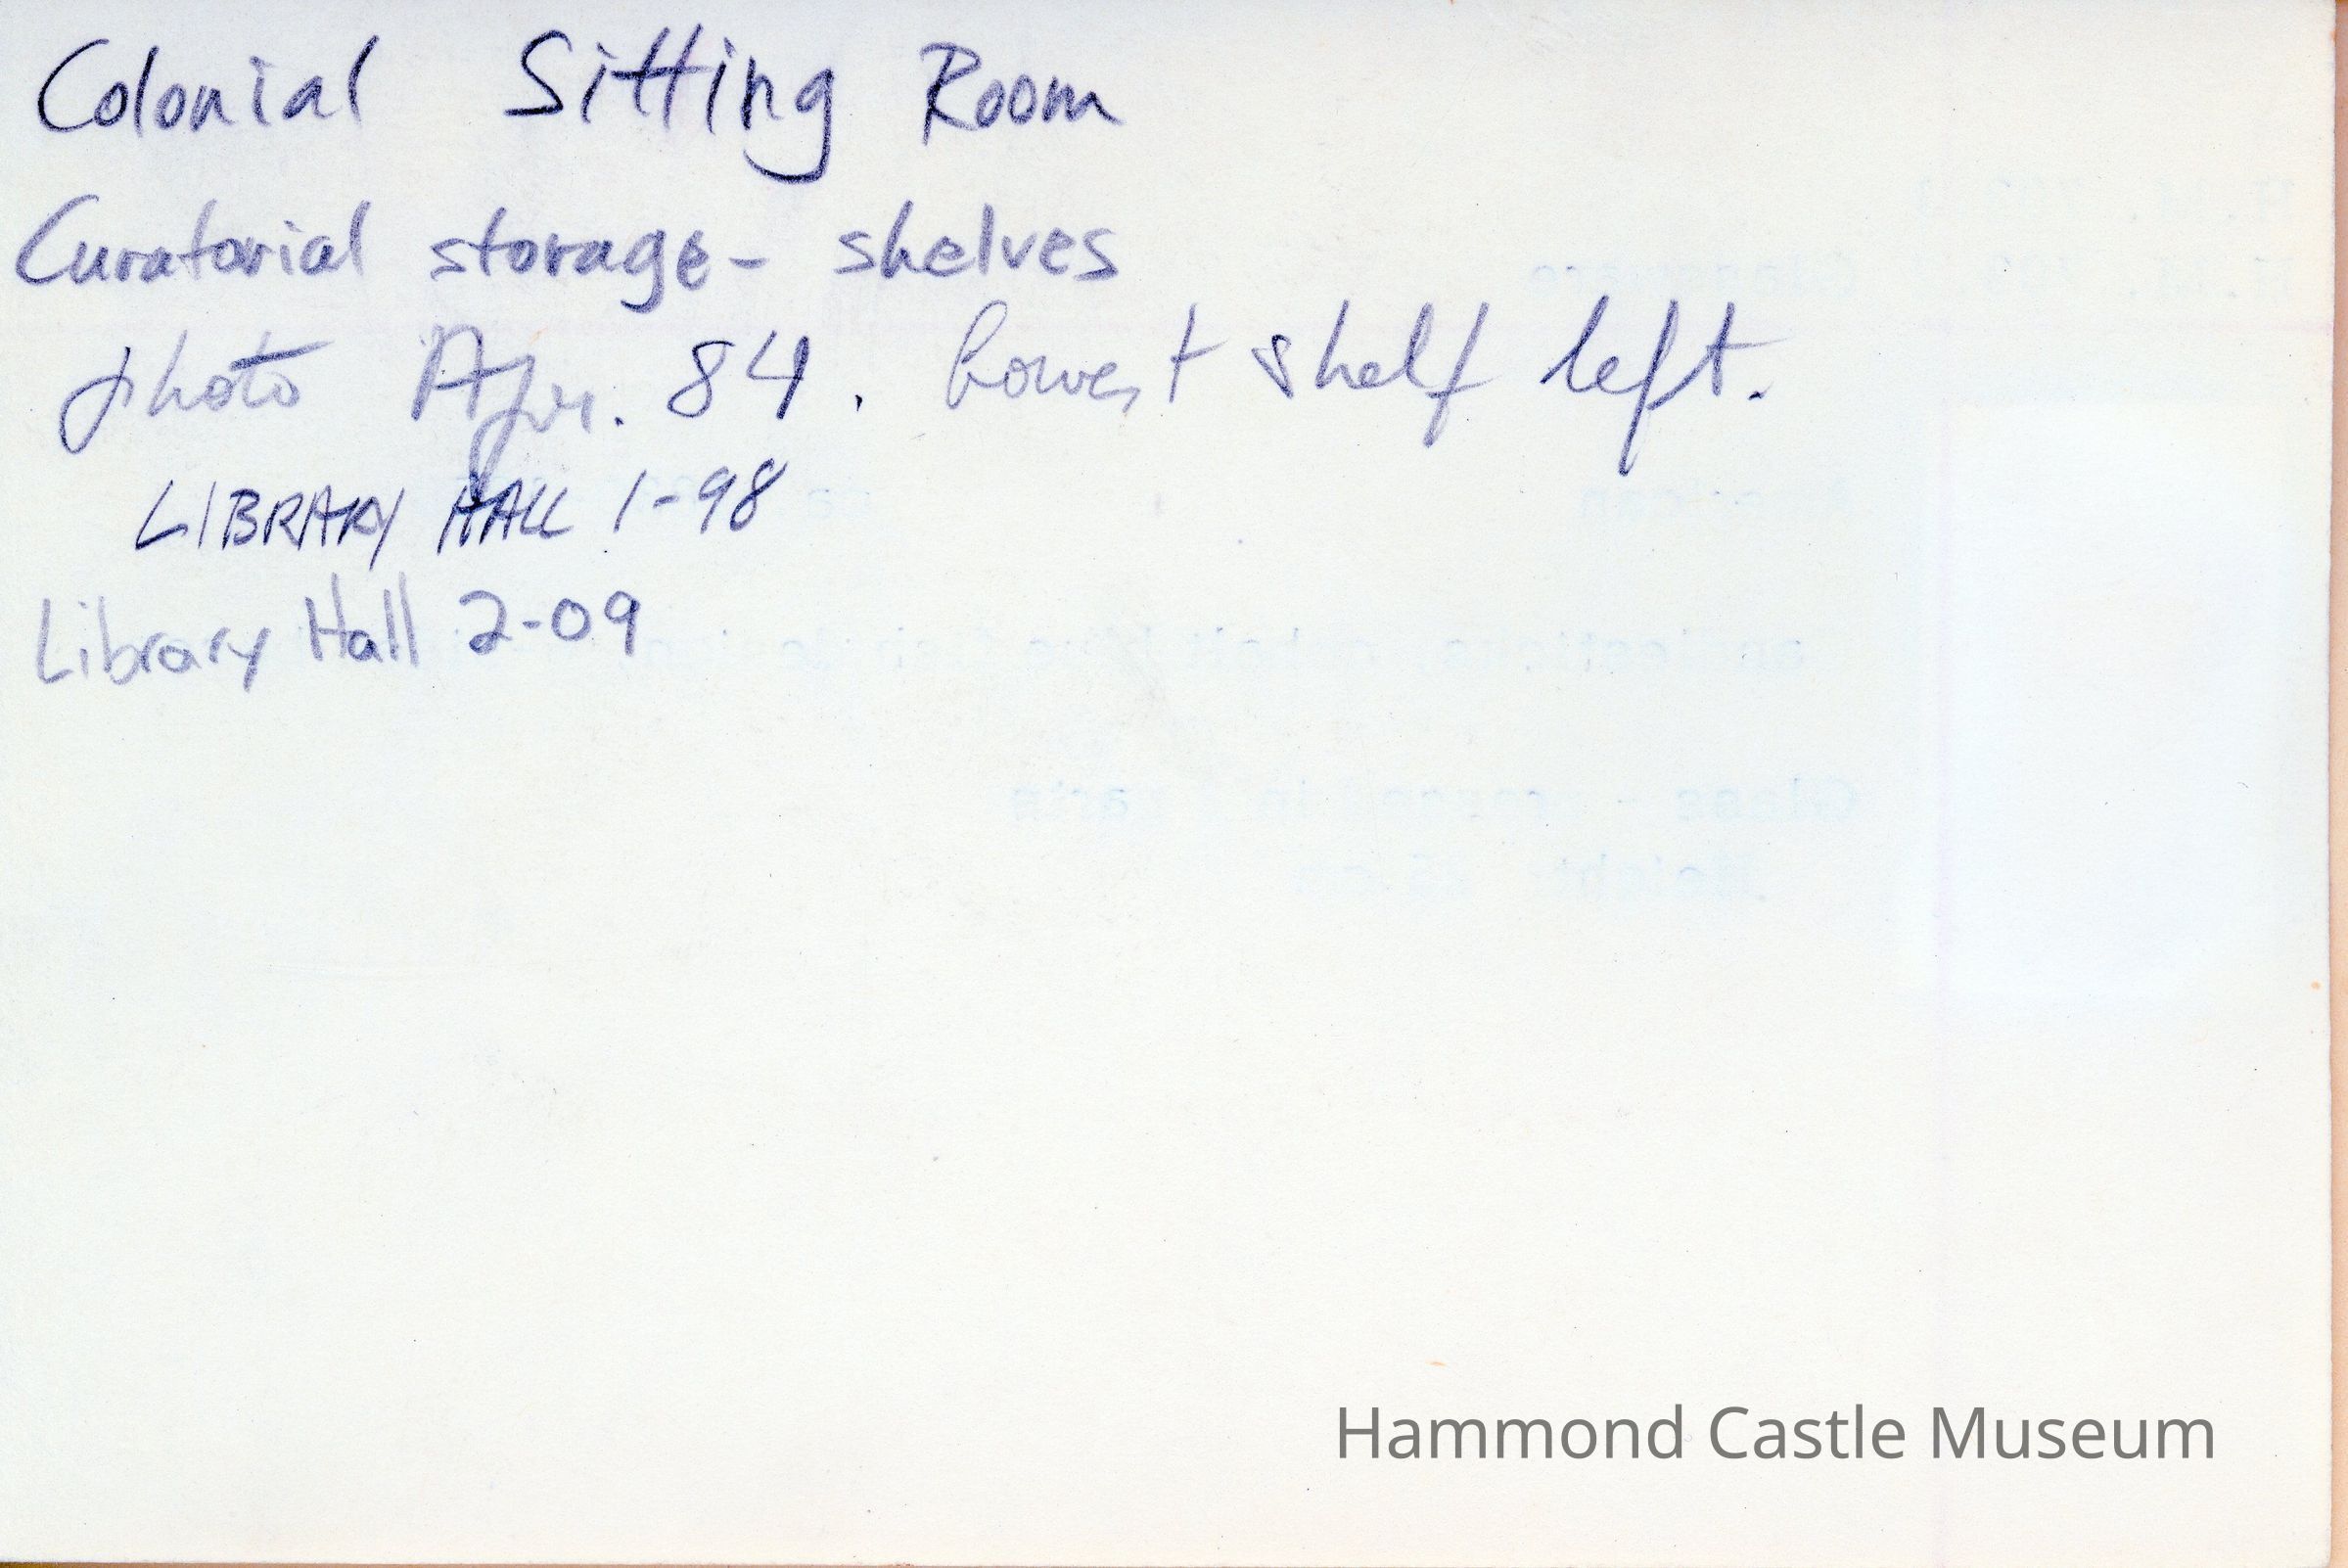 Colonial Sitting Room
Curatorial storage - shelves
photo Apr. 84. Lowest shelf left.
LIBRARY HALL 1-98
Library Hall 2-09
Hammond Castle Museum